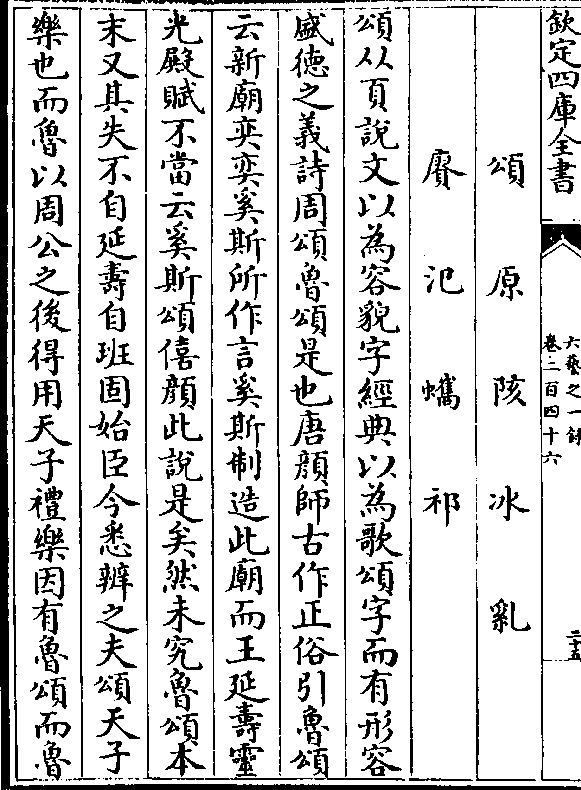 欽定四庫全書
六藝之一録
卷二百四十六
二十五
頌 原 陔 冰 亂
賡 汜 蠵 祁
頌从頁說文以為容貌字經典以為歌頌字而有形容
盛德之義詩周頌魯頌是也唐顔師古作正俗引魯頌
云新廟奕奕奚斯所作言奚斯制造此廟而王延壽靈
光殿賦不當云奚斯頌僖顔此說是矣然未究魯頌本
末又其失不自延壽自班固始臣今悉辨之夫頌天子
樂也而魯以周公之後得用天子禮樂因有魯頌而魯